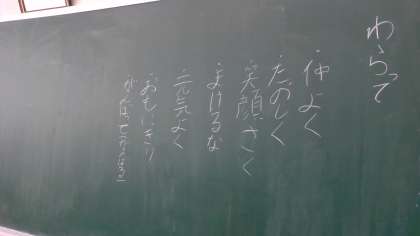 わらって
・仲よく
・たのしく
・笑顔さく
・まけるな
・元気よく
・おもいきり